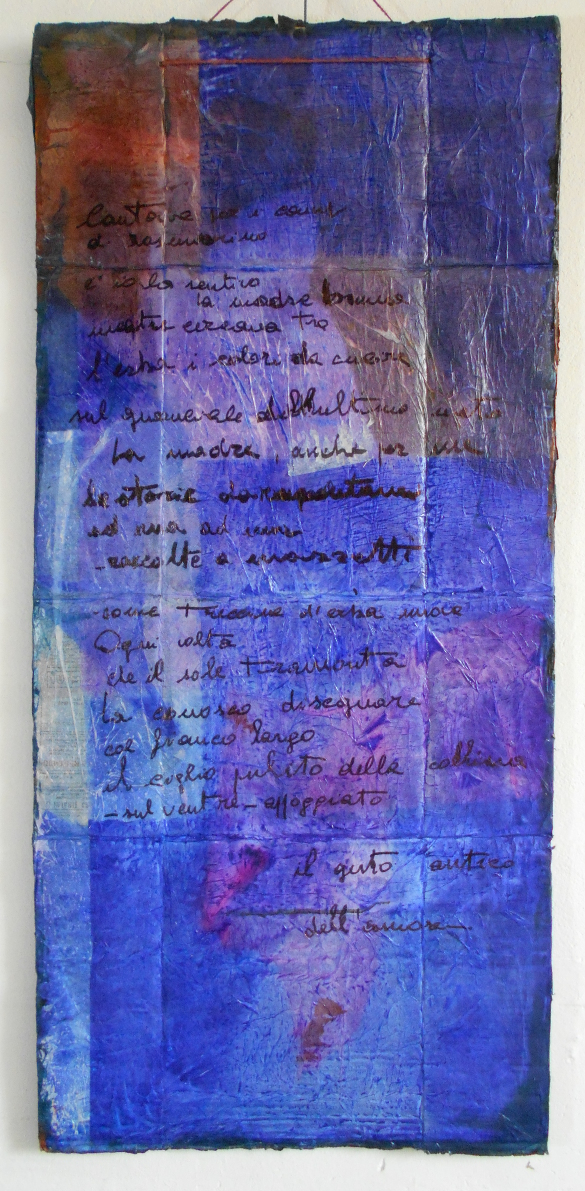 Cantava per i
di rosmarino
e io la sentivo
la madre
mentre cercava tra
l'erba i colori da cucire
sul guanciale dell'ultimo
La madre, anche per me
le storie
ad una ad una
-raccolte a mazzetti
come trecce d'erba
Ogni volta
che il sole tramonta
La conosco disegnare
col fianco largo
il ciglio pulito della collina
-sul ventre- appoggiato
il gesto antico
dell'amore